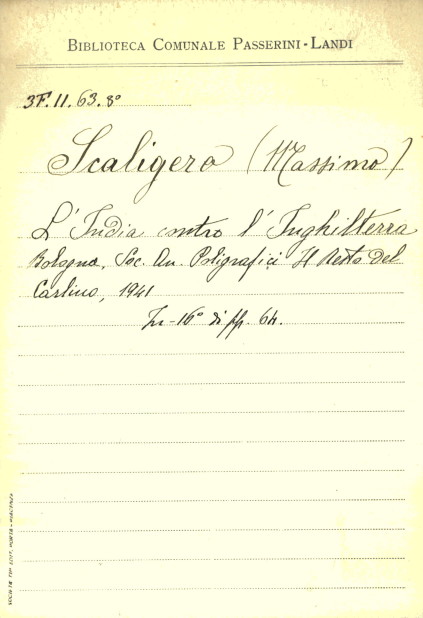 BIBLIOTECA COMUNALE PASSERINI-LANDI
3F.11.63.8°
Scaligero (Massimo)
L'India contro l'Inghilterra
Bologna, Soc. An. Poligrafici Il Resto del
Carlino, 1941
In-16° di pp. 64.